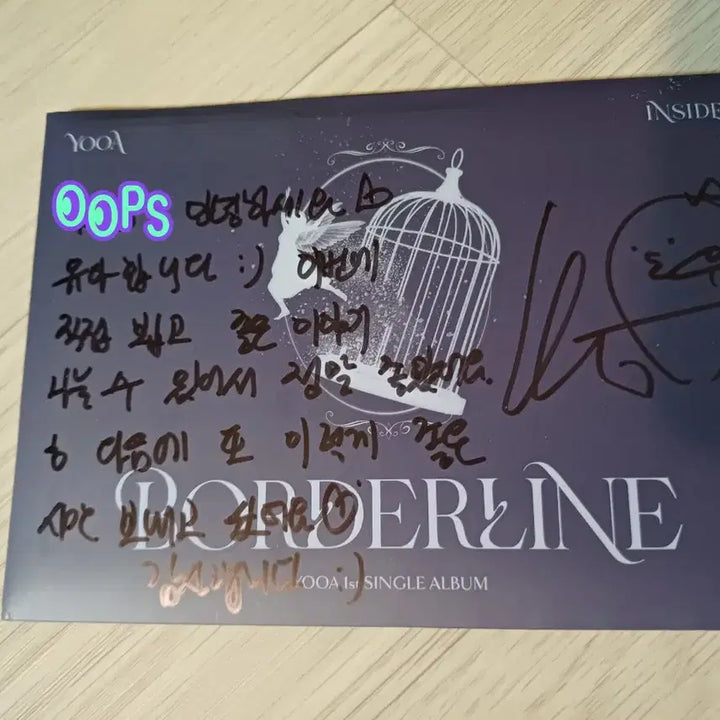 YOOA
INSIDE
OOPS 안녕하세요
유아입니다 :) 이번에
직접 뵙고 좋은 이야기
나눌 수 있어서 정말
다음에 또 이렇게 좋은
시간 보내고 싶어요
감사합니다 :)
BORDERLINE
YOOA 1st SINGLE ALBUM